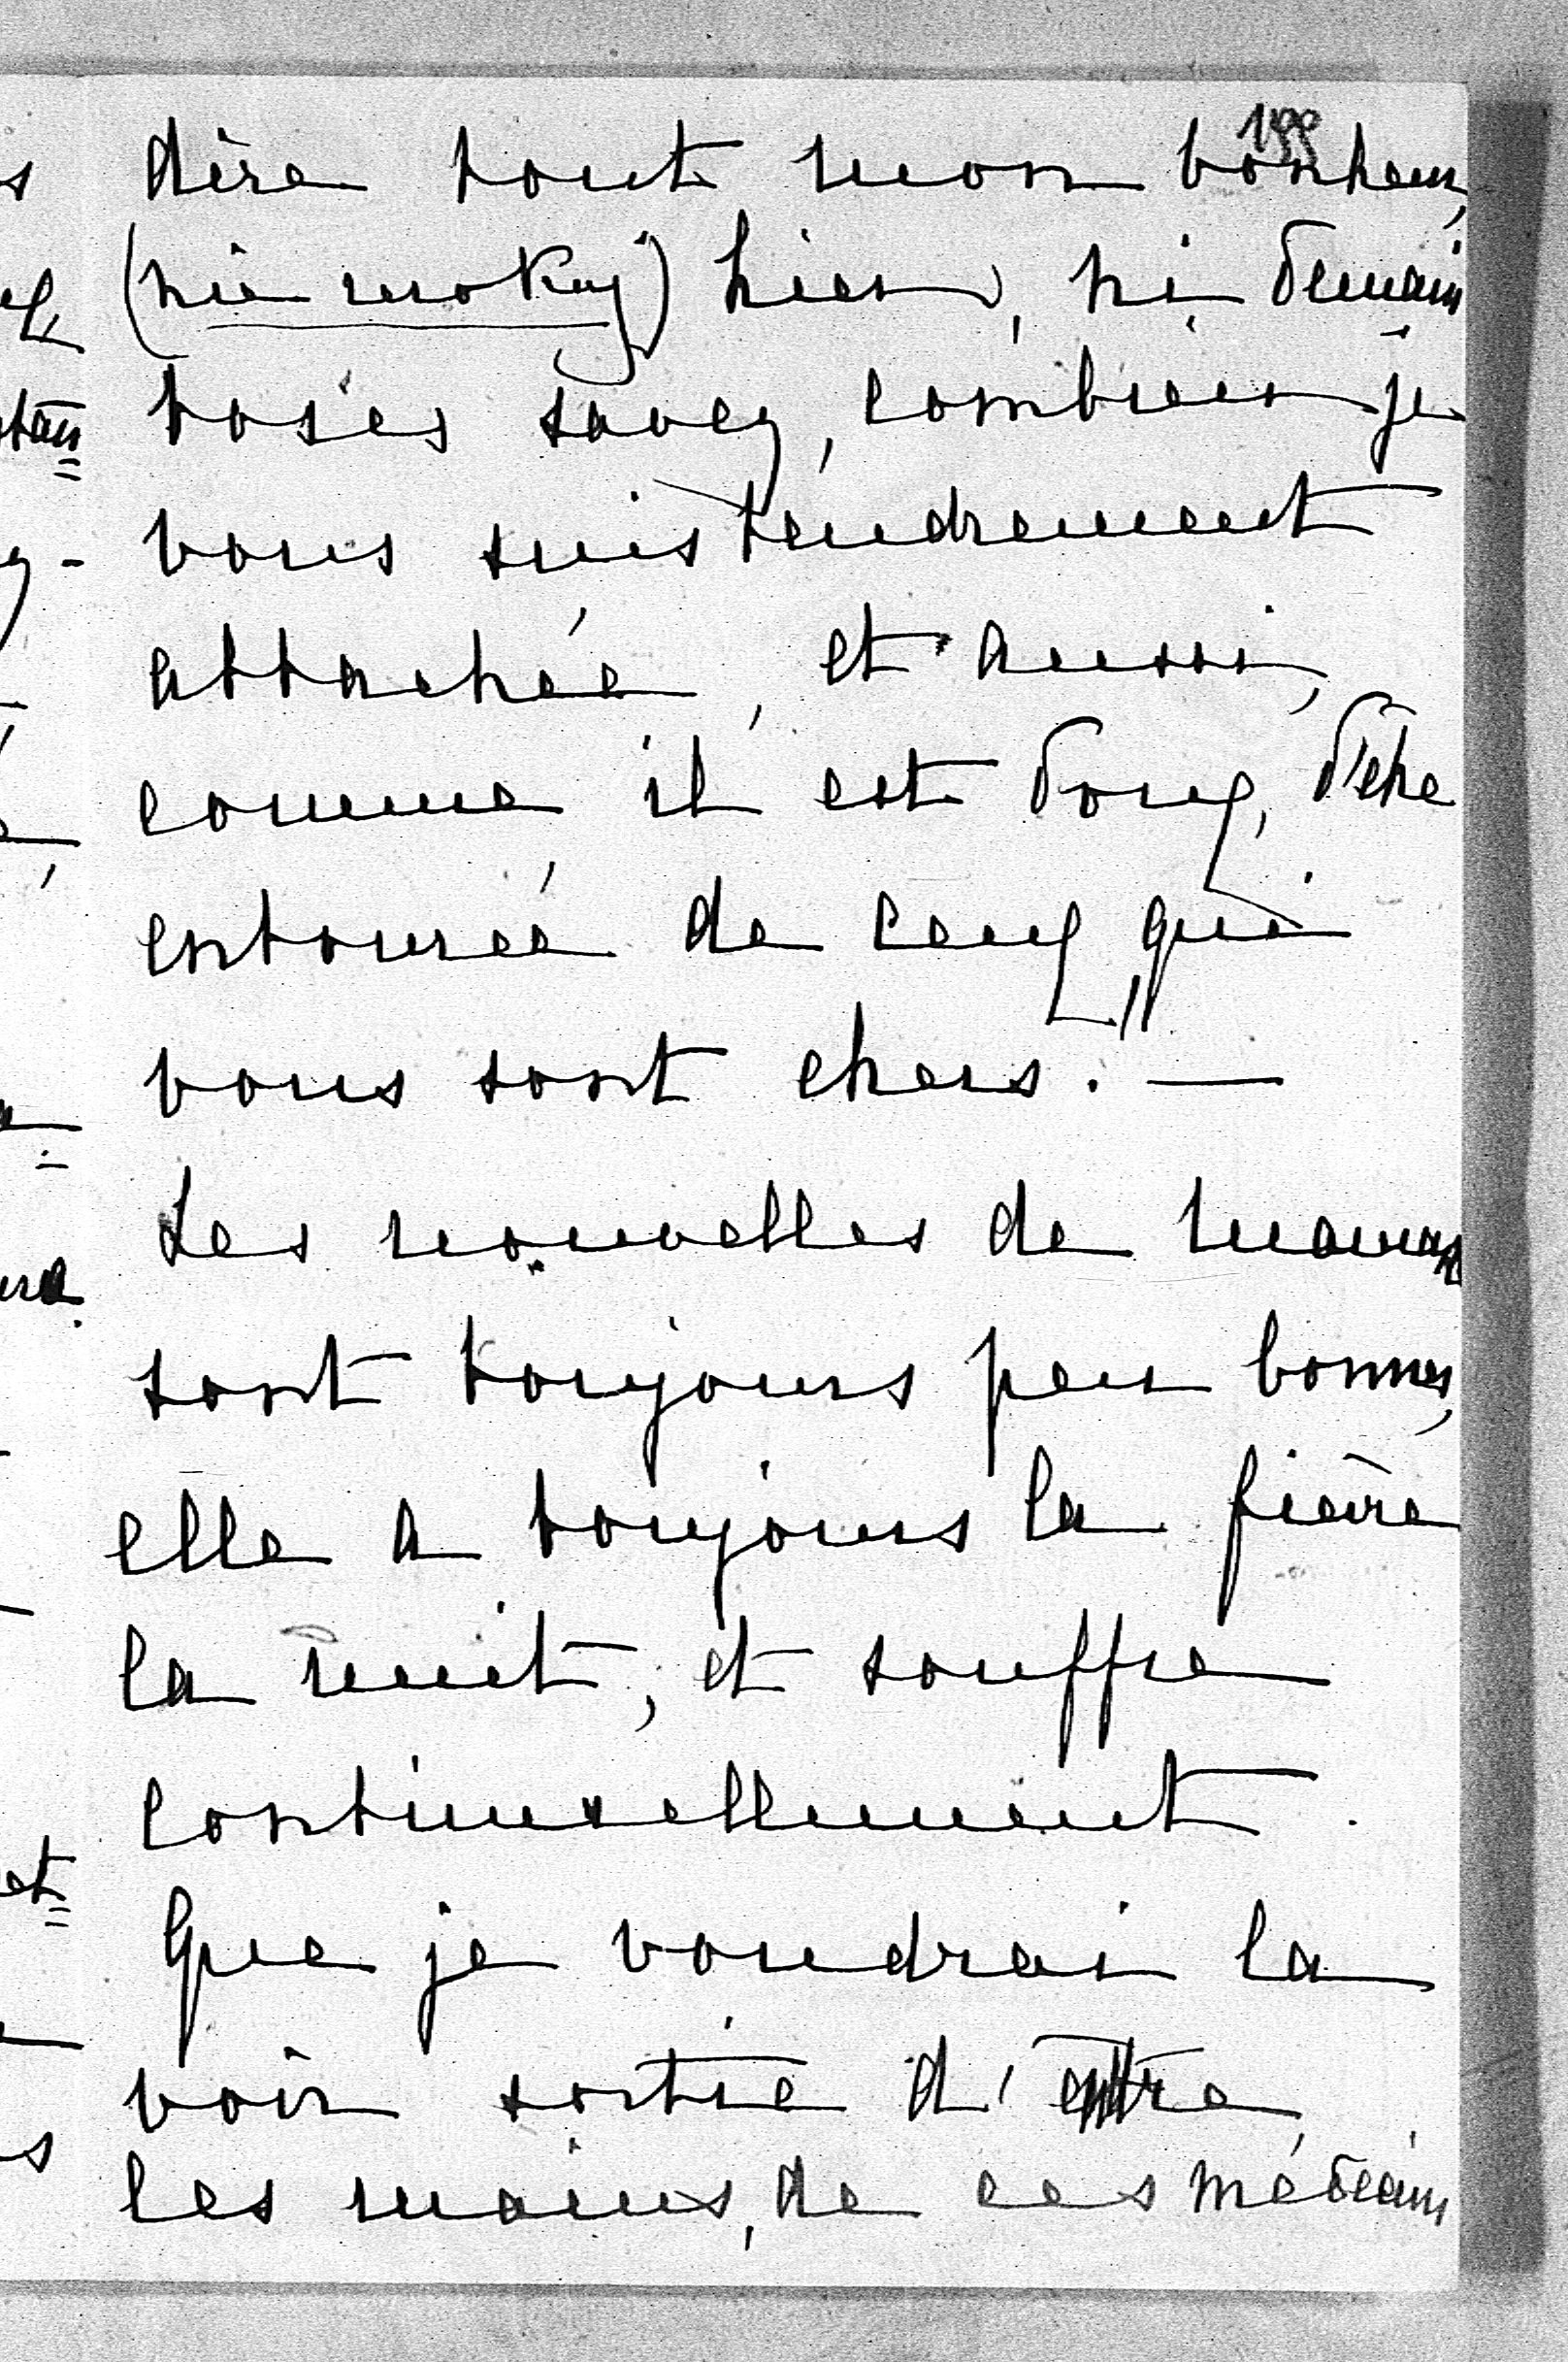 199
dire tout mon bonheur,
(nie mokay) hier, ni demain
savez, combien je
vous suis tendrement
attachée, et aussi,
comme il est doux, d'être
entourée de ceux, qui
vous sont chers. —
Les nouvelles de maman
sont toujours peu bonnes,
elle a toujours la fièvre
la nuit, et souffre
continuellement.
Que je voudrai la
voir sortie d'entre
les mains, de ces médecins